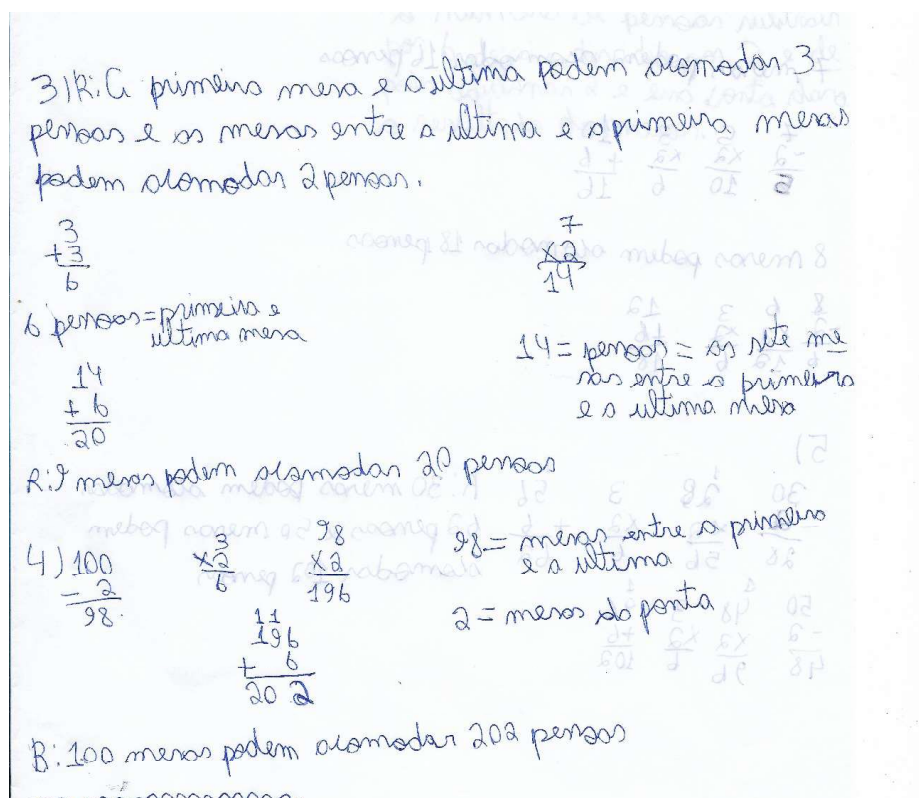 3) R: A primeira mesa e a ultima podem acomodar 3
pessoas e as mesas entre a ultima e a primeira mesas
podem acomodar 2 pessoas.
3
+3
6
7
x2
14
6 pessoas = primeira e
ultima mesa
14 = pessoas = as sete me
sas entre a primeira
e a ultima mesa
14
+ 6
20
R: 9 mesas podem acomodar 20 pessoas
4) 100
- 2
98.
3
x2
6
98
x2
196
98 = mesas entre a primeira
e a ultima
2 = mesas da ponta
11
196
+ 6
202
R: 100 mesas podem acomodar 202 pessoas